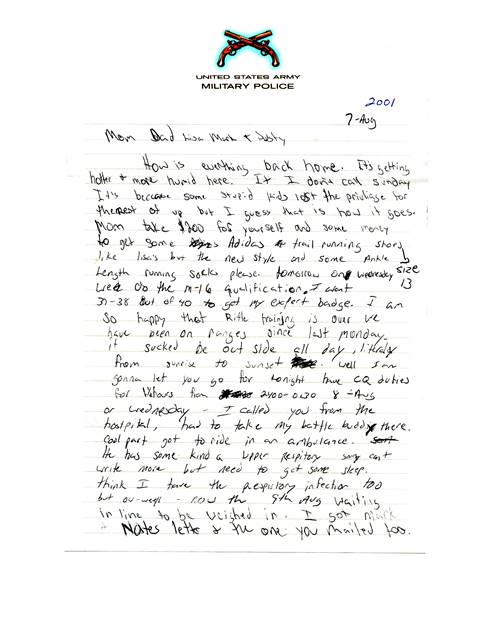 UNITED STATES ARMY
MILITARY POLICE
2001
7-Aug
Mom Dad Lisa Mark + Dusty
How is everything back home. It's getting
hotter + more humid here. If I don't call Sunday
It's because some stupid kids lost the privliage for
the rest of up but I guess that is how it goes.
Mom take $200 for yourself and some money
to get some Adidas trail running shoes
like lisa's but the new style and some Ankle size 13
Length running socks please. tomorrow on wednesday
we do the M-16 qualification. I want
37-38 out of 40 to get my expert badge. I am
so happy that Rifle training is over we
have been on Ranges since last monday.
it sucked be out side all day, literaly
from sunrise to sunset. well I am
gonna let you go for tonight have CQ duties
for hours from 2400-0130 8-Aug
or wednesday - I called you from the
hostpital, had to take my battle buddy there.
Cool part got to ride in an ambulance.
He has some kind a upper respitory can't
write more but need to get some sleep.
think I have the respistory infection too
but now the 9th Aug waiting
in line to be weighed in. I got Mark
+ Notes letter & the one you mailed too.